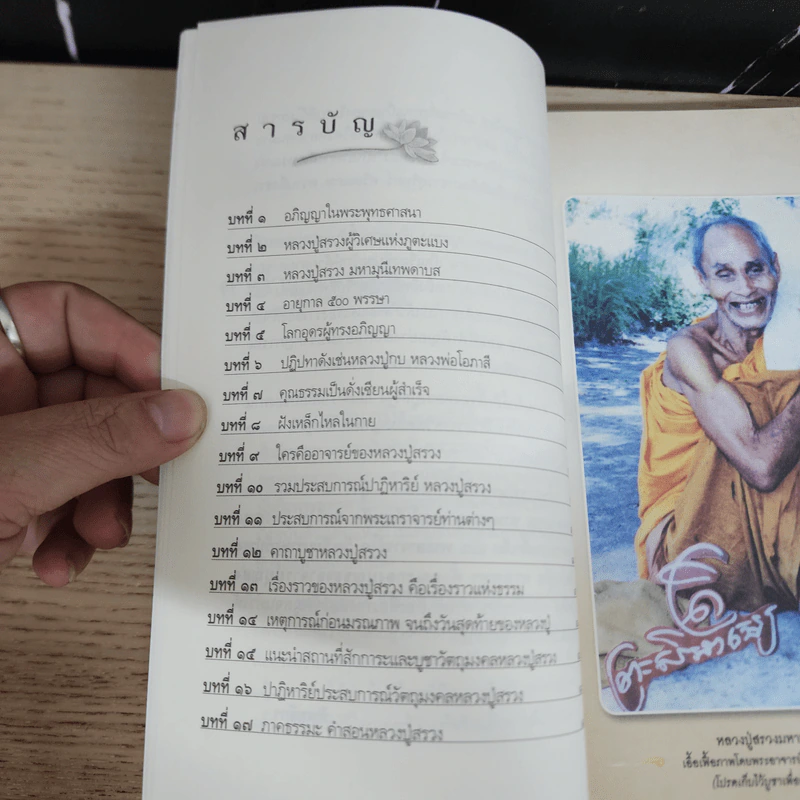 สารบัญ
บทที่ ๑ อภิญญาในพระพุทธศาสนา
บทที่ ๒ หลวงปู่สรวงผู้วิเศษแห่งภูตะแบง
บทที่ ๓ หลวงปู่สรวง มหามุนีเทพดาบส
บทที่ ๔ อายุกาล ๕๐๐ พรรษา
บทที่ ๕ โลกอุดรผู้ทรงอภิญญา
บทที่ ๖ ปฏิปทาดังเช่นหลวงปู่กบ หลวงพ่อโอภาสี
บทที่ ๗ คุณธรรมเป็นดั่งเซียนผู้สำเร็จ
บทที่ ๘ ฝังเหล็กไหลในกาย
บทที่ ๙ ใครคืออาจารย์ของหลวงปู่สรวง
บทที่ ๑๐ รวมประสบการณ์ปาฏิหาริย์ หลวงปู่สรวง
บทที่ ๑๑ ประสบการณ์จากพระเถราจารย์ท่านต่างๆ
บทที่ ๑๒ คาถาบูชาหลวงปู่สรวง
บทที่ ๑๓ เรื่องราวของหลวงปู่สรวง คือเรื่องราวแห่งธรรม
บทที่ ๑๔ เหตุการณ์ก่อนมรณภาพ จนถึงวันสุดท้ายของหลวงปู่
บทที่ ๑๕ แนะนำสถานที่สักการะและบูชาวัตถุมงคลหลวงปู่สรวง
บทที่ ๑๖ ปาฏิหาริย์ประสบการณ์วัตถุมงคลหลวงปู่สรวง
บทที่ ๑๗ ภาคธรรมะ คำสอนหลวงปู่สรวง
หลวงปู่สรวงมหา
เอื้อเฟื้อภาพโดยพระอาจารย์
(โปรดเก็บไว้บูชาเพื่อ